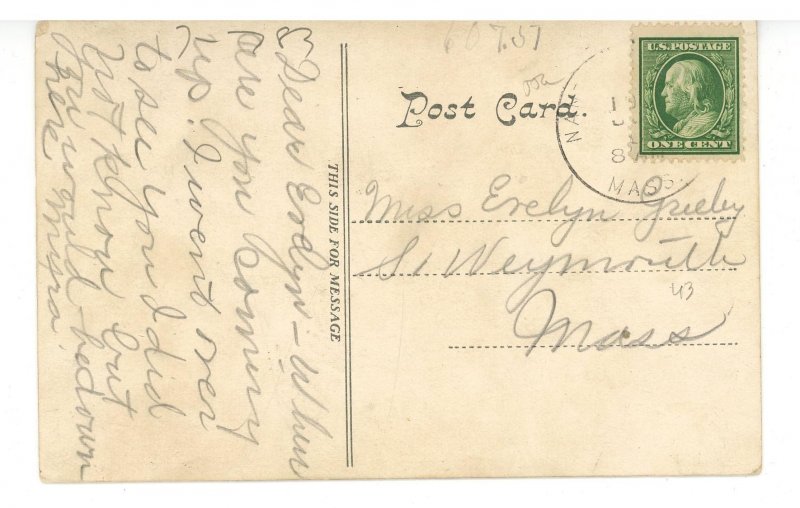 60 T.57
Post Card.
U.S. POSTAGE
ONE CENT
NAN
8
MASS
Miss Evelyn Greeley
S. Weymouth
Mass
43
THIS SIDE FOR MESSAGE
Dear Evelyn - When
are you coming
up. I went over
to see you I did
not know but
you would be down
here Myra.